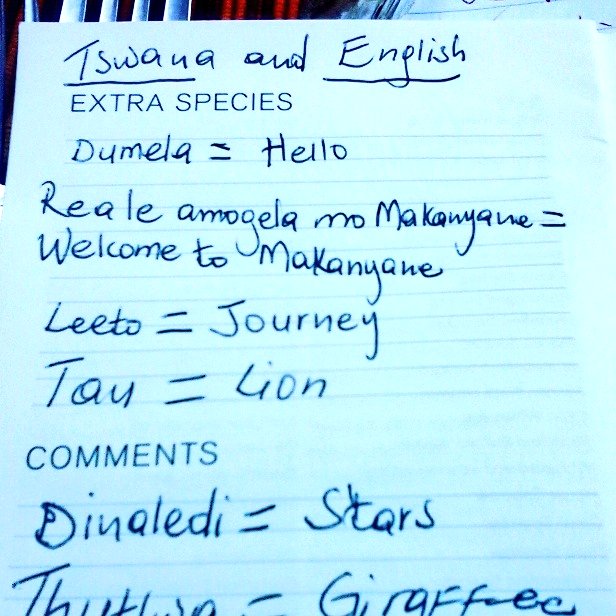 Tswana and English
EXTRA SPECIES
Dumela = Hello
Reale amogela mo Makanyane =
Welcome to Makanyane
Leeto = Journey
Tau = Lion
COMMENTS
Dinaledi = Stars
Thutlwa = Giraffes